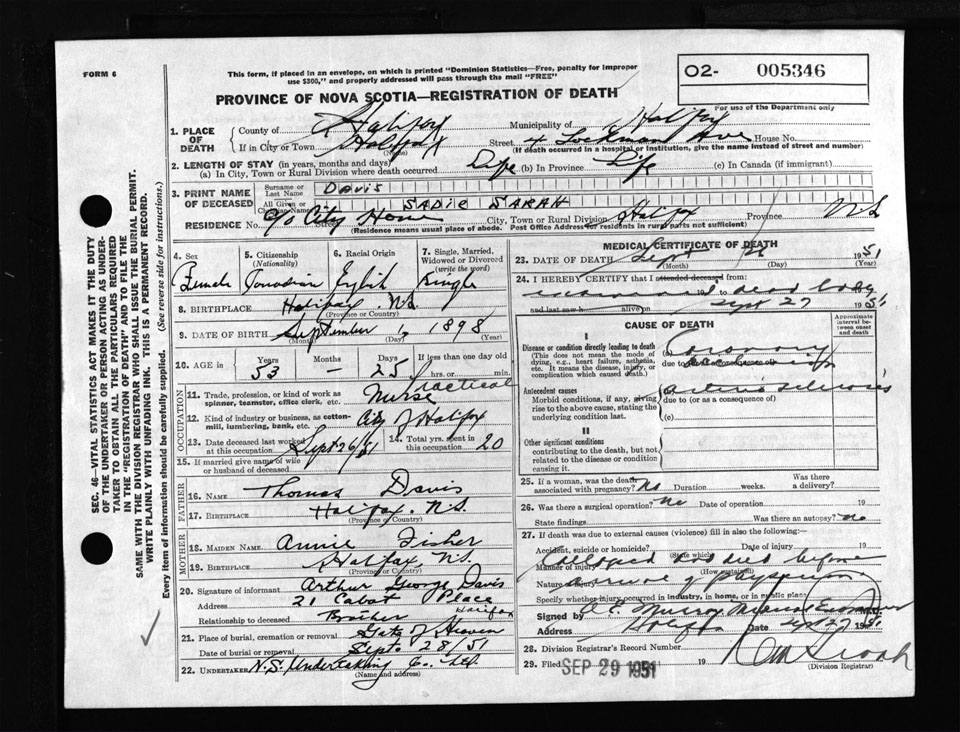 FORM 6
This form, if placed in an envelope, on which is printed "Dominion Statistics—Free, penalty for improper
use $300," and properly addressed will pass through the mail "FREE"
O2- 005346
For use of the Department only
PROVINCE OF NOVA SCOTIA—REGISTRATION OF DEATH
1. PLACE OF DEATH
County of Halifax Municipality of Halifax
If in City or Town Halifax Street 4 Lockman Ave House No.
(Name) (If death occurred in a hospital or institution, give the name instead of street and number)
2. LENGTH OF STAY (in years, months and days)
(a) In City, Town or Rural Division where death occurred Life (b) In Province Life (c) In Canada (if immigrant)
3. PRINT NAME OF DECEASED
Surname or Last Name DAVIS
All Given or Christian Names SADIE SARAH
RESIDENCE No. c/o City Home Street City, Town or Rural Division Halifax Province N.S.
(Residence means usual place of abode. Post Office Address for residents in rural parts not sufficient)
4. Sex Female
5. Citizenship (Nationality) Canadian
6. Racial Origin English
7. Single, Married, Widowed or Divorced (write the word) Single
8. BIRTHPLACE Halifax N.S.
(Province or Country)
9. DATE OF BIRTH September 1, 1898
(Month) (Day) (Year)
10. AGE in Years 53 Months — Days 25 If less than one day old
hrs. or min.
OCCUPATION
11. Trade, profession, or kind of work as spinner, teamster, office clerk, etc. Practical Nurse
12. Kind of industry or business, as cotton-mill, lumbering, bank, etc. City of Halifax
23. Date deceased last worked at this occupation Sept 26/51
14. Total yrs. spent in this occupation 20
15. If married give name of wife or husband of deceased
FATHER
16. NAME Thomas Davis
17. BIRTHPLACE Halifax, N.S.
(Province or Country)
MOTHER
18. MAIDEN NAME Annie Fisher
19. BIRTHPLACE Halifax, N.S.
(Province or Country)
20. Signature of informant Arthur George Davis
Address 21 Cabot Place
Halifax
Relationship to deceased Brother
21. Place of burial, cremation or removal Gate of Heaven
Date of burial or removal Sept. 28/51
22. UNDERTAKER N.S. Undertaking Co. Ltd.
(Name and address)
MEDICAL CERTIFICATE OF DEATH
23. DATE OF DEATH Sept 26 1951
(Month) (Day) (Year)
24. I HEREBY CERTIFY that I attended deceased from:
dead body
and last saw h alive on Sept 27 1951
CAUSE OF DEATH
Approximate interval between onset and death
I
Disease or condition directly leading to death
(This does not mean the mode of dying, e.g., heart failure, asthenia, etc. It means the disease, injury, or complication which caused death.)
(a) Coronary
due to occlusion
Antecedent causes
Morbid conditions, if any, giving rise to the above cause, stating the underlying condition last.
(b) arterio sclerosis
due to (or as a consequence of)
(c)
II
Other significant conditions
contributing to the death, but not related to the disease or condition causing it.
25. If a woman, was the death associated with pregnancy? No Duration weeks. Was there a delivery?
26. Was there a surgical operation? No Date of operation 19
State findings Was there an autopsy? No
27. If death was due to external causes (violence) fill in also the following:
Accident, suicide or homicide? Date of injury 19
(State which)
Manner of injury collapsed and died before
(How sustained)
Nature of injury arrival of physician
Specify whether injury occurred in industry, in home, or in public place:
Signed by Murray Medical Examiner
Address Halifax Date Sept 27 1951
28. Division Registrar's Record Number
29. Filed SEP 29 1951 19
(Division Registrar)
SEC. 46—VITAL STATISTICS ACT MAKES IT THE DUTY
OF THE UNDERTAKER OR PERSON ACTING AS UNDER-
TAKER TO OBTAIN ALL THE PARTICULARS REQUIRED
IN THE "REGISTRATION OF DEATH" AND TO FILE THE
SAME WITH THE DIVISION REGISTRAR WHO SHALL ISSUE THE BURIAL PERMIT.
WRITE PLAINLY WITH UNFADING INK. THIS IS A PERMANENT RECORD.
Every item of information should be carefully supplied. (See reverse side for instructions.)